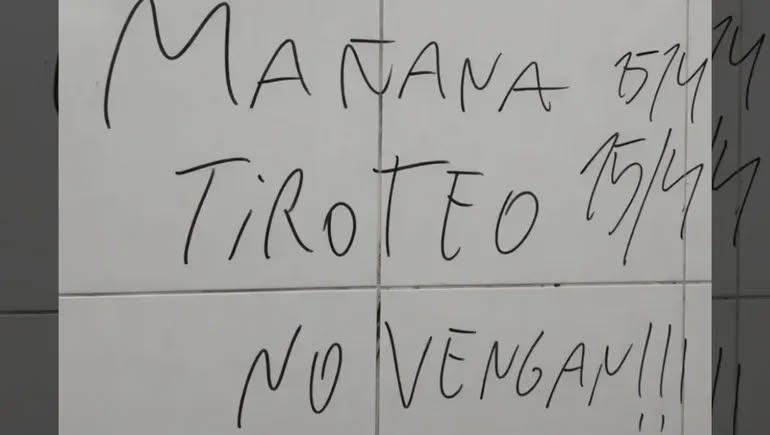 MAÑANA 15/4
TIROTEO 15/4
NO VENGAN!!!